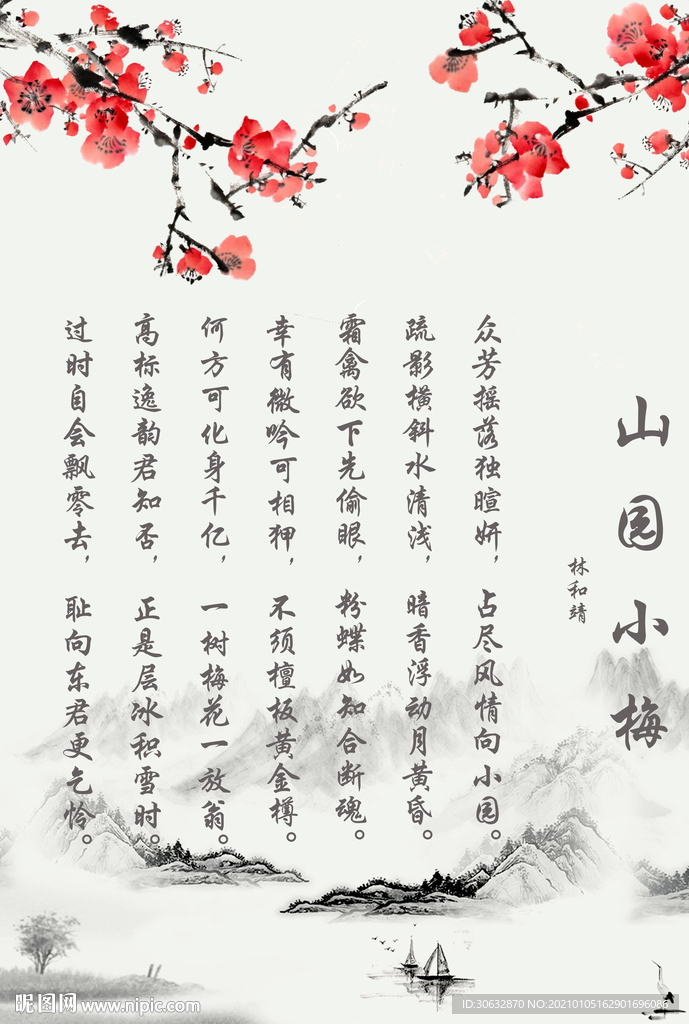 山园小梅
林和靖
众芳摇落独暄妍，占尽风情向小园。
疏影横斜水清浅，暗香浮动月黄昏。
霜禽欲下先偷眼，粉蝶如知合断魂。
幸有微吟可相狎，不须檀板黄金樽。
何方可化身千亿，一树梅花一放翁。
高标逸韵君知否，正是层冰积雪时。
过时自会飘零去，耻向东君更乞怜。
昵图网 www.nipic.com
ID:30632870 NO:20210105162901696086